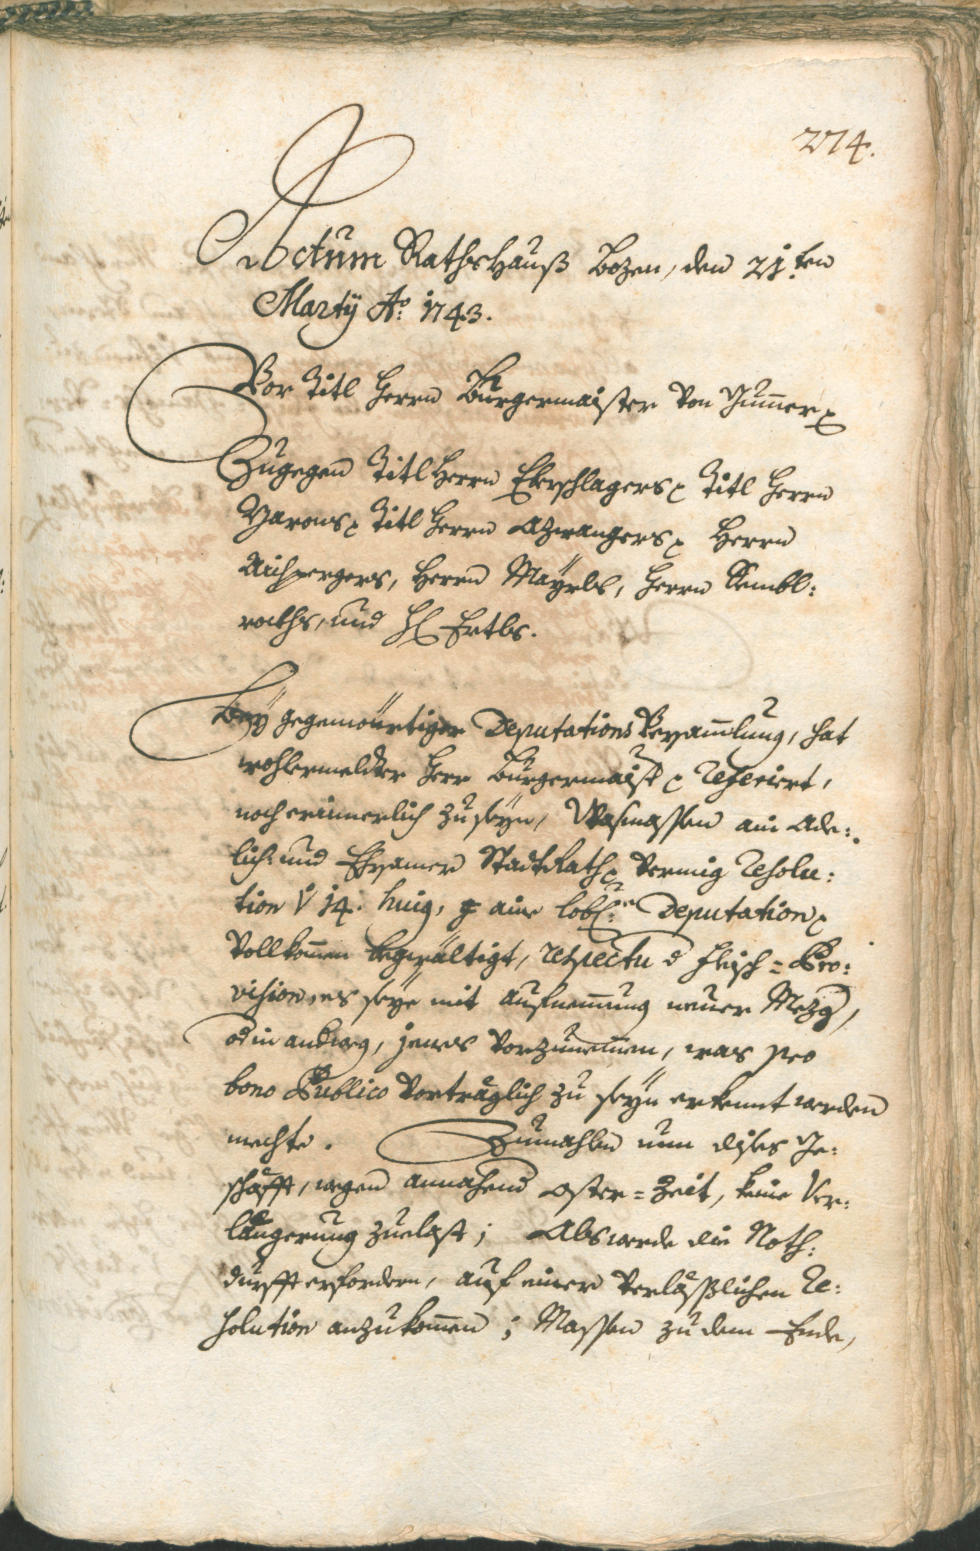 274.
Actum Rathshauß Bozen, den 21.ten
Marty Ao. 1743.
Vor Titl Herrn Burgermaister von Jummer
Zugegen Titl Herrn Eberschlagers Titl Herrn
Titl Herrn Azwangers Herrn
Aichpergers, Herrn Mayrls, Herrn Kembl:
raths, und H. Ertls.
Bey gegenwürtiger Deputations Versamlung, hat
wohlermelter Herr Burgermaist. referiert,
noch erinnerlich zu seyn, Wasmassen ain Ade:
lich: und Ehrsamer StadtRath, vermög Resolu:
tion v 14. huig, aine lobl. Deputation
vollkomen begwältigt, respectu d Fleisch=Pro:
vision, es seye mit aufnemung neuer Mezg,
od in andweg, jenes vorzunemen, was pro
bono Publico vorträglich zu seyn erkennt werden
mechte. Zumahlen nun dises Ge:
schäfft, wegen annahend Oster=Zeit, keine Ver:
längerung zuelast; Als werde die Noth:
durfft erfordern, auf einer verläßlichen Re:
solution anzukomen; Massen zu dem Ende,